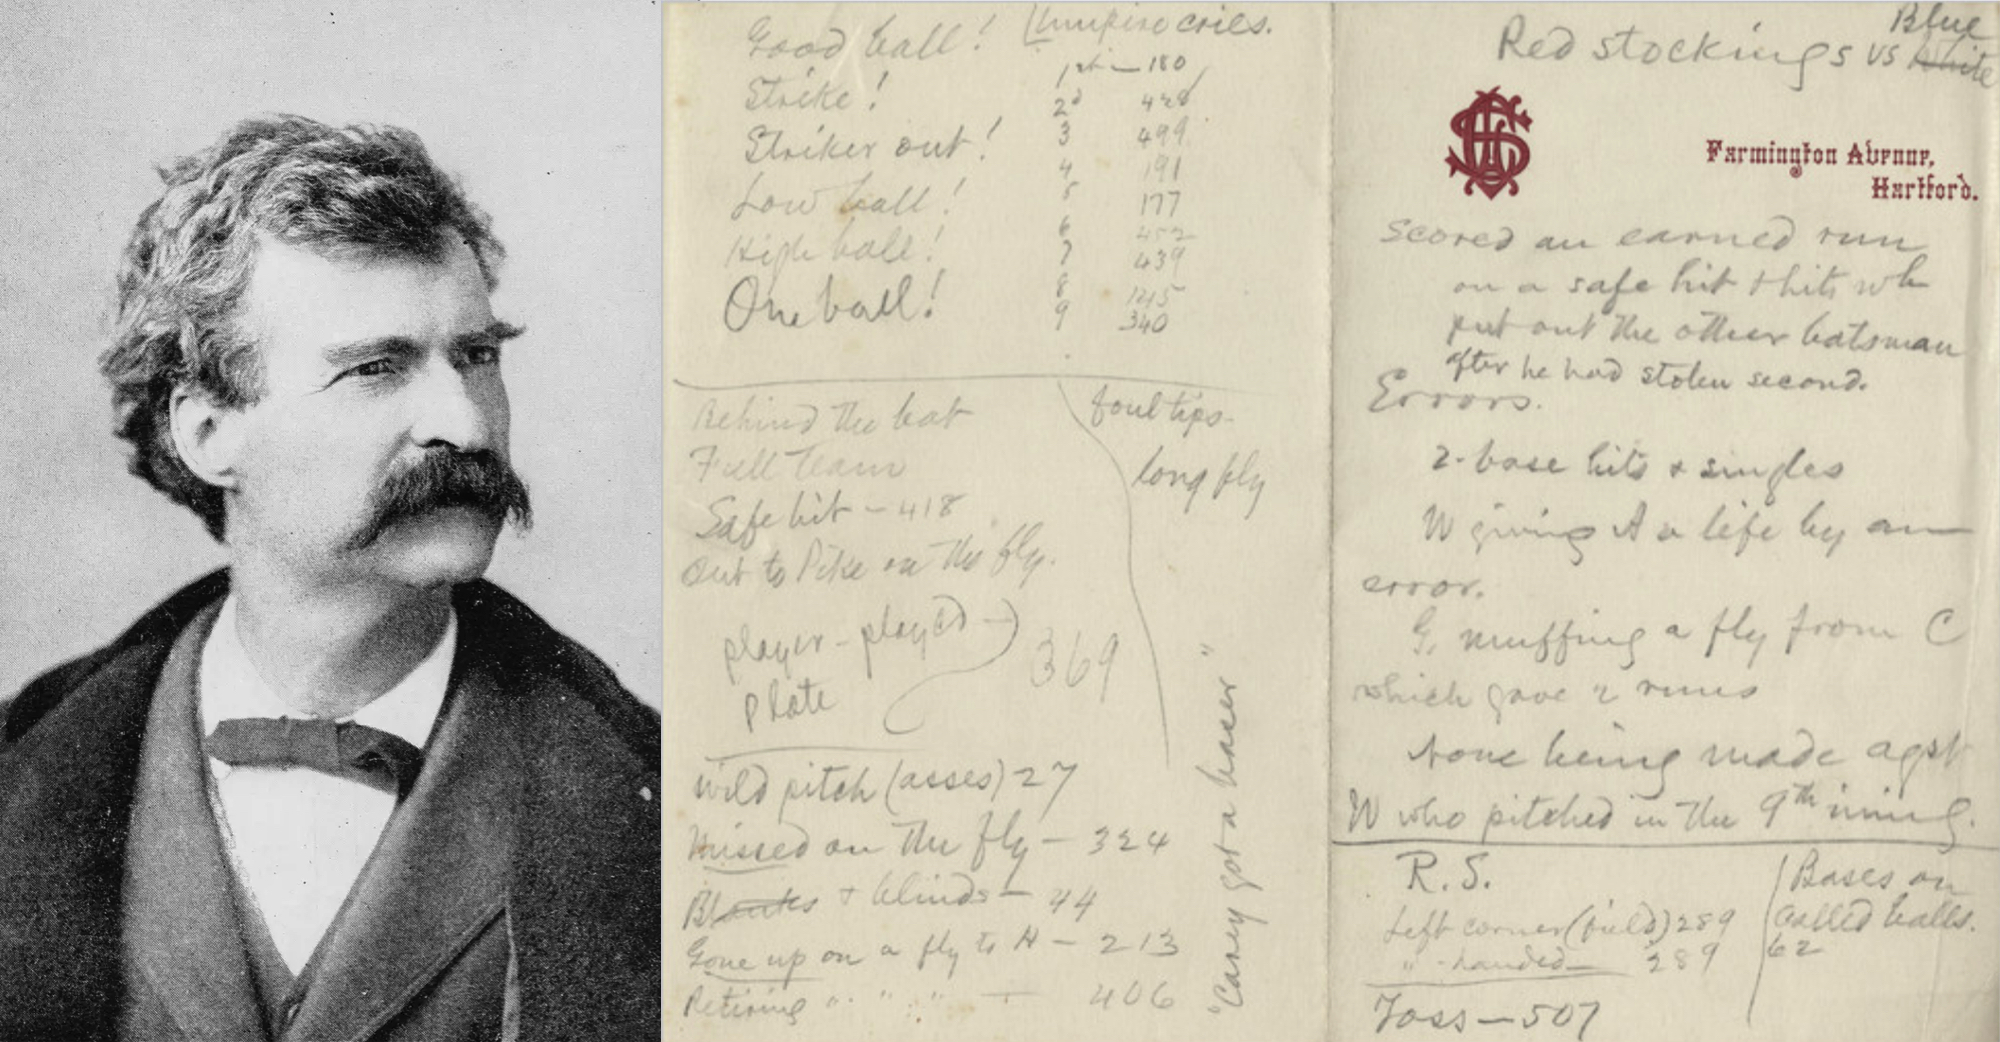 Good ball! Umpire cries.
Strike!
Striker out!
Low ball!
High ball!
One ball!
1st — 180
2d 428
3 499
4 191
5 177
6 452
7 439
8 1215
9 340
Behind the bat
Full team
Safe hit — 418
Out to Pike on the fly.
foul tips—
long fly
player - played —
plate
369
wild pitch (asses) 27
Missed on the fly — 324
& blinds — 44
Gone up on a fly to A — 213
Retiring " " " — 406
"Casey got a baser"
Red stockings vs Blue
White
Farmington Avenue,
Hartford.
Scored an earned run
on a safe hit & hits wh
put out the other batsman
after he had stolen second.
Errors.
2-base hits & singles
W giving A a life by an
error.
G. muffing a fly from C
which gave 2 runs
None being made agst
W who pitched in the 9th inning.
R.S.
Left corner (field) 289
" -handed — 289
Bases on
called balls.
62
Toss — 507